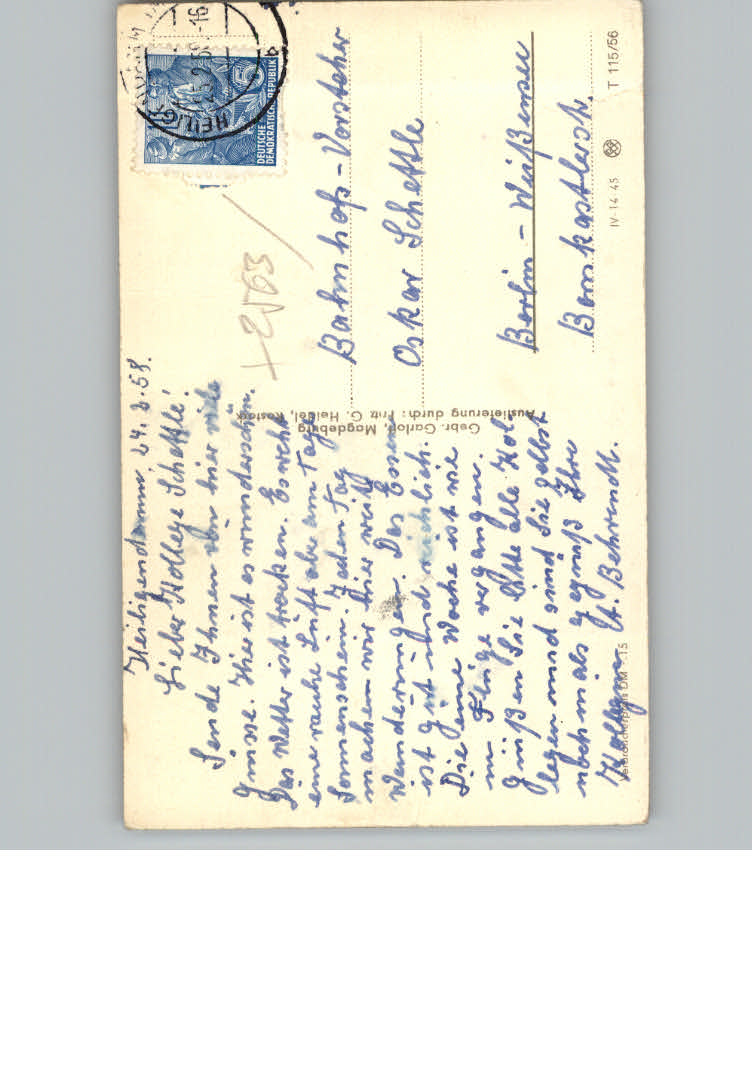 Heiligendamm, 24.2.58.
Lieber Kollege Schettle!
Sende Ihnen von hier viele
Grüsse. Hier ist es wunderschön.
Das Wetter ist trocken. Es weht
eine rauhe Luft aber am Tage
Sonnenschein. Jeden Tag
machen wir hier weite
Wanderungen. Das Essen
ist gut und reichlich.
Die eine Woche ist wie
im Fluge vergangen.
Grüßen Sie bitte alle Kol-
legen und sind Sie selbst
nochmals gegrüßt Ihre
Kollegin Behrendt.
Verbraucherpreis DM -.15
Gebr. Garloff, Magdeburg
Auslieferung durch: Fritz G. Heidel, Rostock
DEUTSCHE
DEMOKRATISCHE REPUBLIK
5
+2563
Bahnhofs-Vorsteher
Oskar Schettle
Berlin-Weißensee
Bernkastlerstr.
IV-14-45
T 115/56